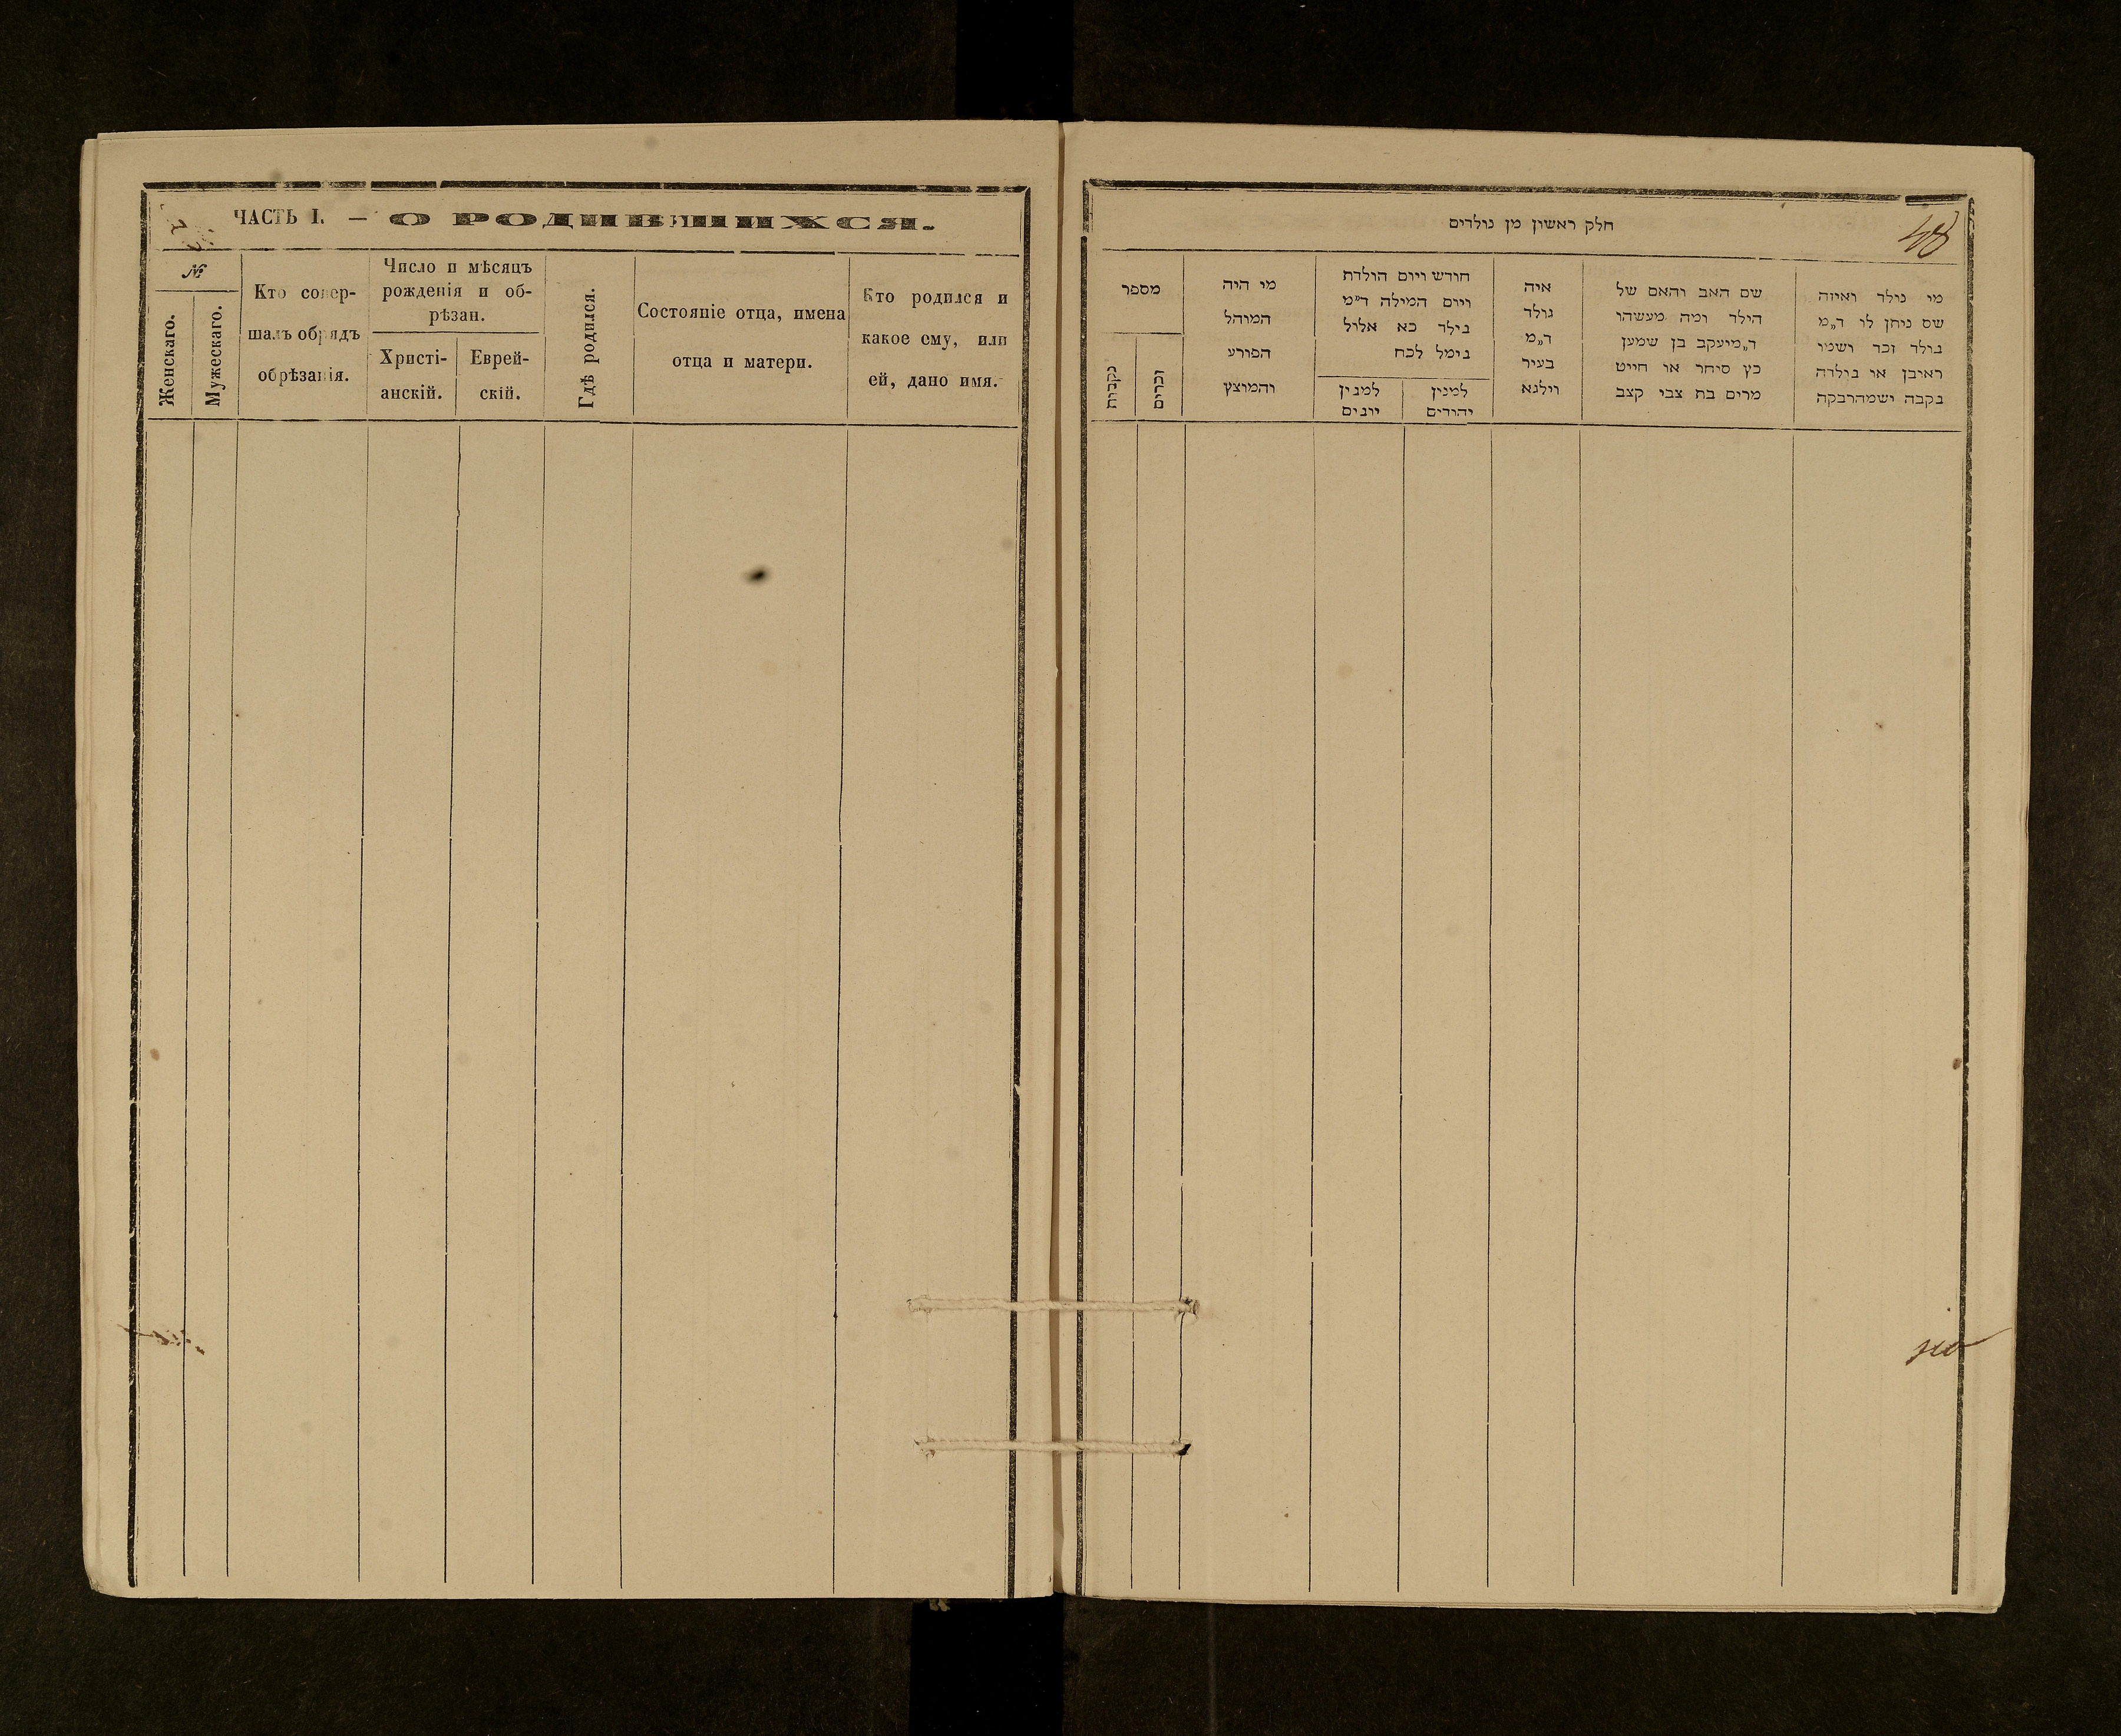 ЧАСТЬ I. — О РОДИВШИХСЯ.
№
Женскаго.
Мужескаго.
Кто совер-
шалъ обрядъ
обрѣзанія.
Число и мѣсяцъ
рожденія и об-
рѣзан.
Христі-
анскій.
Еврей-
скій.
Гдѣ родился.
Состояніе отца, имена
отца и матери.
Кто родился и
какое ему, или
ей, дано имя.
חלק ראשון מן נולדים
48
מי נולד ואיזה
שס ניתן לו ד״מ
נולד זכר ושמו
ראיבן או נולדה
נקבה ישמהרבקה
שם האב והאם של
הילד ומה מעשהו
ד״מיעקב בן שמען
כץ סיחר או חייט
מרים בת צבי קצב
איה
נולד
ד״מ
בעיר
וילנא
חודש ויום הולדת
ויום המילה ד״מ
נילד כא אלול
נימל לכח
למנין
יהודים
למנין
יונים
מי היה
המוהל
הפורע
והמוצץ
מספר
זכרים
נקבות